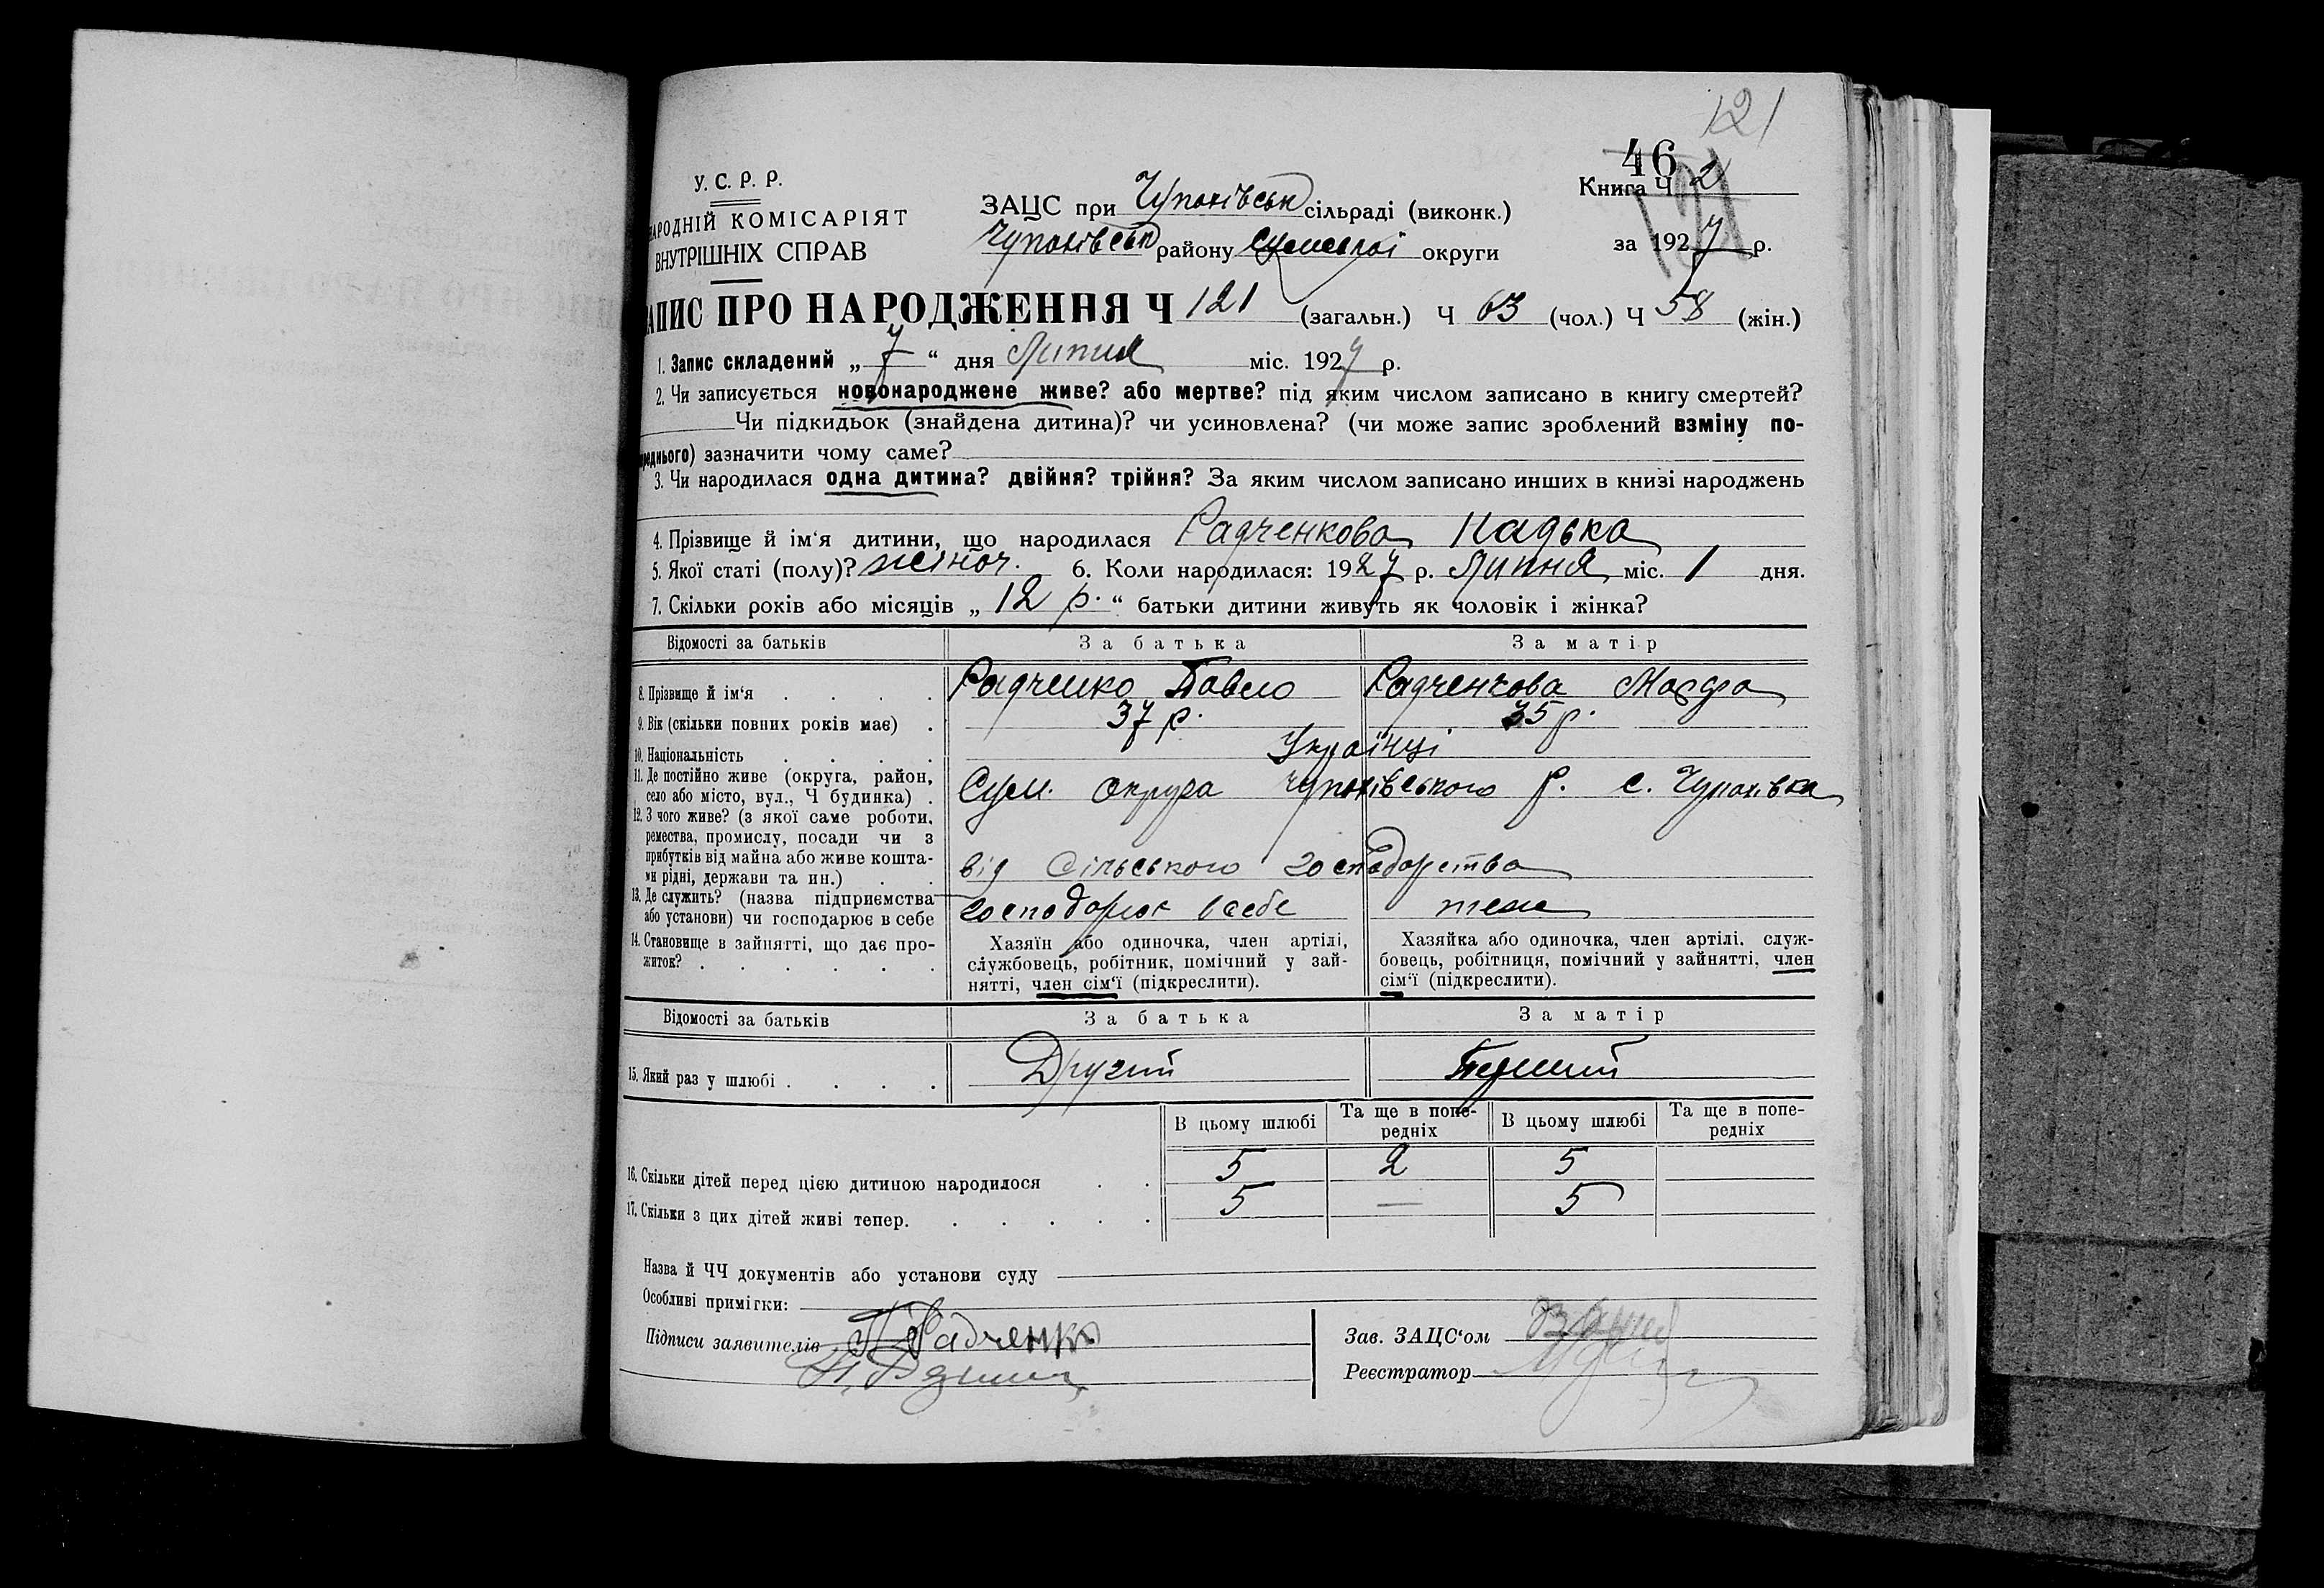 121
46
У. С. Р. Р.
Книга Ч 2
121
НАРОДНІЙ КОМІСАРІЯТ
ВНУТРІШНІХ СПРАВ
ЗАЦС при Чупахівськ сільраді (виконк.)
Чупахівськ району Сумської округи
за 1927 р.
ЗАПИС ПРО НАРОДЖЕННЯ Ч 121 (загальн.) Ч 63 (чол.) Ч 58 (жін.)
1. Запис складений „ 7 “ дня Липня міс. 1927 р.
2. Чи записується новонароджене живе? або мертве? під яким числом записано в книгу смертей?
Чи підкидьок (знайдена дитина)? чи усиновлена? (чи може запис зроблений взміну по-
переднього) зазначити чому саме?
3. Чи народилася одна дитина? двійня? трійня? За яким числом записано инших в книзі народжень
4. Прізвище й ім‘я дитини, що народилася Радченкова Надька
5. Якої статі (полу)? жіноч. 6. Коли народилася: 1927 р. Липня міс. 1 дня.
7. Скільки років або місяців „ 12 р. “ батьки дитини живуть як чоловік і жінка?
Відомості за батьків За батька За матір
8. Прізвище й ім‘я . . . . Радченко Павло Радченкова Марфа
9. Вік (скільки повних років має) . 37 р. 35 р.
10. Національність . . . . Українці
11. Де постійно живе (округа, район,
село або місто, вул., Ч будинка) . Сум. округа Чупахівського р. с. Чупахівка
12. З чого живе? (з якої саме роботи,
ремества, промислу, посади чи з
прибутків від майна або живе кошта-
ми рідні, держави та ин.) . . від сільського господарства
13. Де служить? (назва підприємства
або установи) чи господарює в себе господарює всебе теж
14. Становище в зайнятті, що дає про-
житок? . . . . . .
Хазяїн або одиночка, член артілі,
службовець, робітник, помічний у зай-
нятті, член сім‘ї (підкреслити).
Хазяйка або одиночка, член артілі. служ-
бовець, робітниця, помічний у зайнятті, член
сім‘ї (підкреслити).
Відомості за батьків За батька За матір
15. Який раз у шлюбі . . . . Другий Перший
В цьому шлюбі Та ще в попе-
редніх В цьому шлюбі Та ще в попе-
редніх
16. Скільки дітей перед цією дитиною народилося . . 5 2 5
17. Скільки з цих дітей живі тепер. . . . . . 5 — 5
Назва й ЧЧ документів або установи суду
Особливі примігки:
Підписи заявителів П Радченко
Зав. ЗАЦС‘ом
Реєстратор